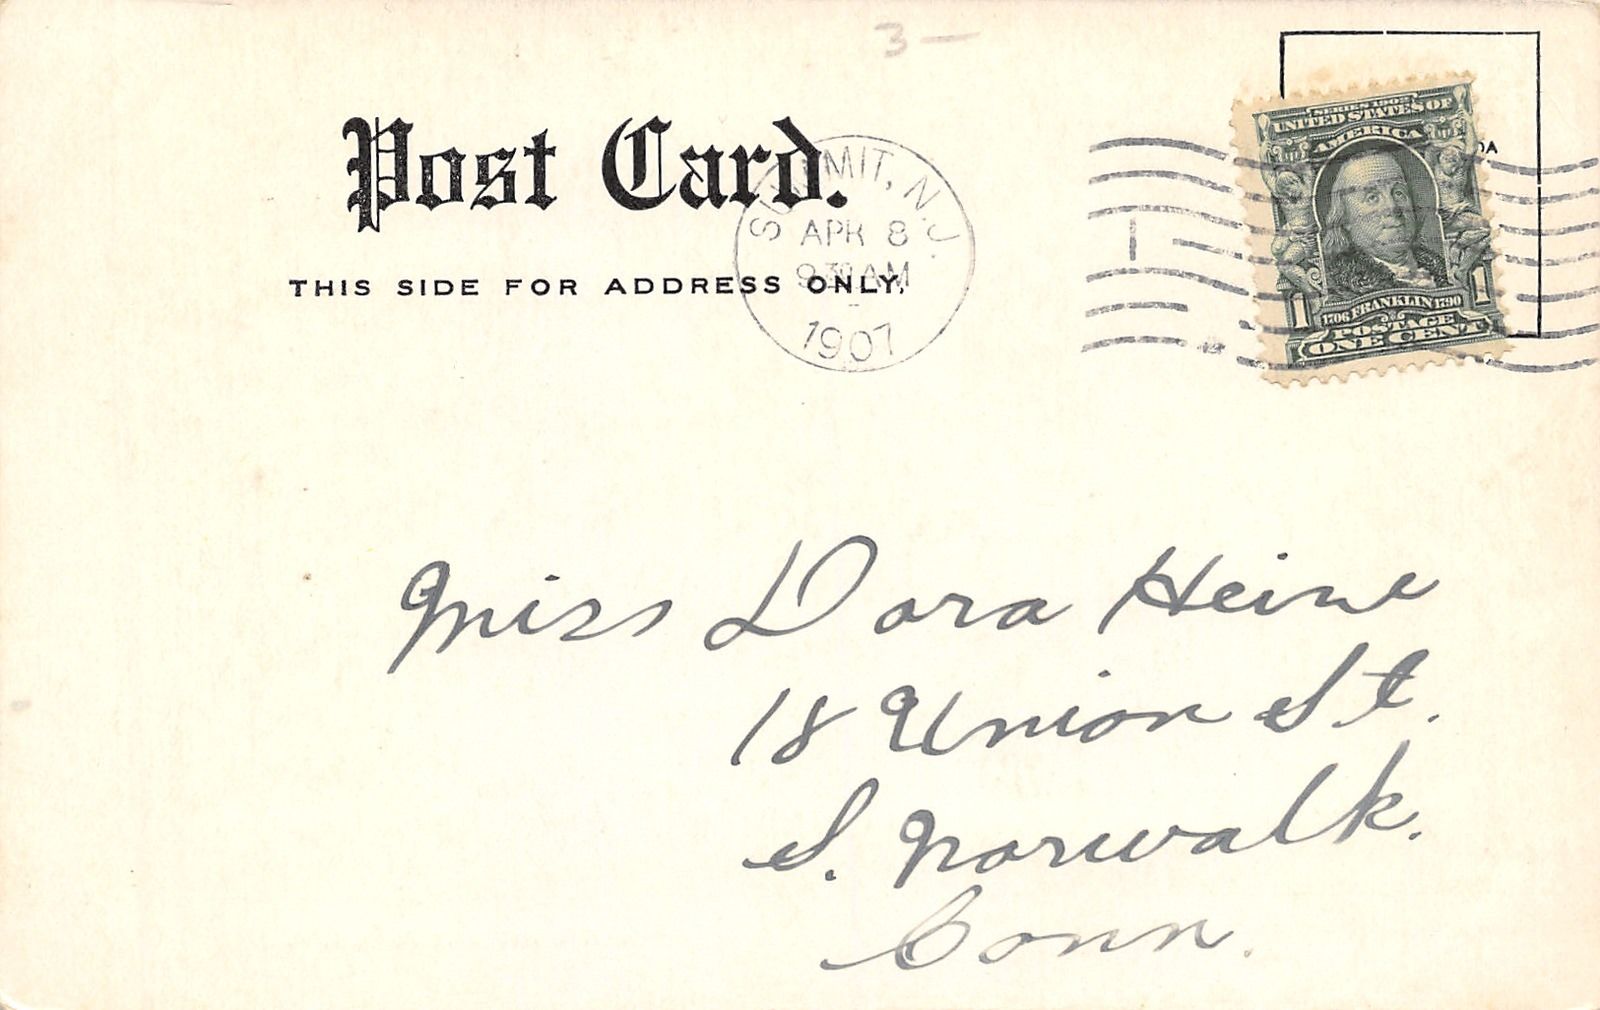 3—
Post Card.
THIS SIDE FOR ADDRESS ONLY.
SUMMIT, N.J.
APR 8
930 AM
1907
1
SERIES 1902
UNITED STATES OF
AMERICA
1706 FRANKLIN 1790
1 POSTAGE 1
ONE CENT
DA
Miss Dora Heine
18 Union St.
S. Norwalk.
Conn.